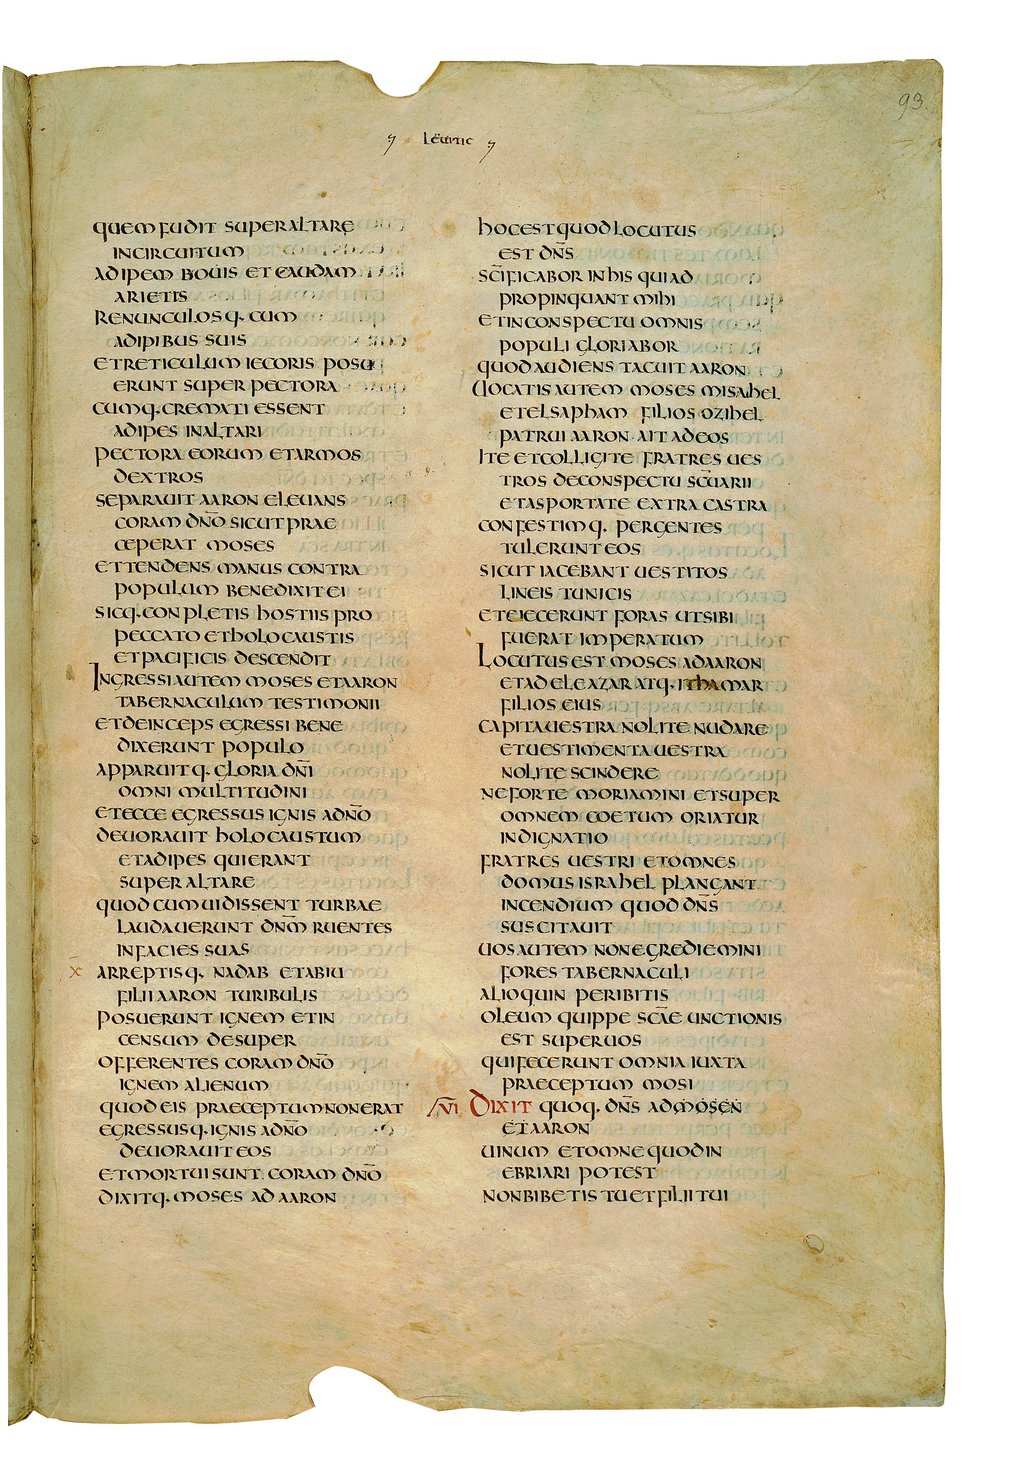 93.
Leuitic
quem fudit super altare
in circuitum
adipem bouis et caudam
arietis
renunculosq. cum
adipibus suis
et reticulum iecoris posu
erunt super pectora
cumq. cremati essent
adipes in altari
pectora eorum et armos
dextros
separauit aaron eleuans
coram dn̄o sicut prae
ceperat moses
et tendens manus contra
populum benedixit ei
sicq. conpletis hostiis pro
peccato et holocaustis
et pacificis descendit
Ingressi autem moses et aaron
tabernaculum testimonii
et deinceps egressi bene
dixerunt populo
apparuitq. gloria dn̄i
omni multitudini
et ecce egressus ignis a dn̄o
deuorauit holocaustum
et adipes qui erant
super altare
quod cum uidissent turbae
laudauerunt dn̄m ruentes
in facies suas
arreptisq. nadab et abiu
filii aaron turibulis
posuerunt ignem et in
censum desuper
offerentes coram dn̄o
ignem alienum
quod eis praeceptum non erat
egressusq. ignis a dn̄o
deuorauit eos
et mortui sunt coram dn̄o
dixitq. moses ad aaron
hoc est quod locutus
est dn̄s
sc̄ificabor in his qui ad
propinquant mihi
et in conspectu omnis
populi gloriabor
quod audiens tacuit aaron
Uocatis autem moses misahel
et elsapham filios ozihel
patrui aaron ait ad eos
Ite et colligite fratres ues
tros de conspectu sc̄uarii
et asportate extra castra
confestimq. pergentes
tulerunt eos
sicut iacebant uestitos
lineis tunicis
et eiecerunt foras ut sibi
fuerat imperatum
Locutus est moses ad aaron
et ad eleazar atq. ithamar
filios eius
capita uestra nolite nudare
et uestimenta uestra
nolite scindere
ne forte moriamini et super
omnem coetum oriatur
indignatio
fratres uestri et omnes
domus israhel plangant
incendium quod dn̄s
suscitauit
uos autem non egrediemini
fores tabernaculi
alioquin peribitis
oleum quippe sc̄ae unctionis
est super uos
qui fecerunt omnia iuxta
praeceptum mosi
Dixit quoq. dn̄s ad mosen
et aaron
uinum et omne quod in
ebriari potest
non bibetis tu et filii tui